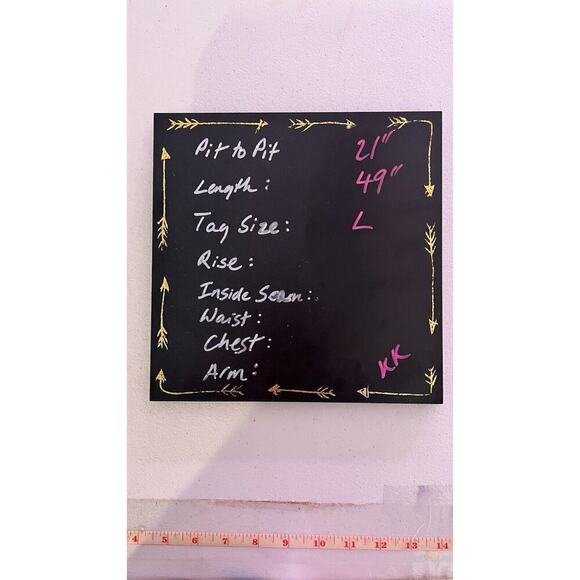 Pit to Pit 21"
Length: 49"
Tag Size: L
Rise:
Inside Seam:
Waist:
Chest:
Arm: KK
4 5 6 7 8 9 10 11 12 13 14